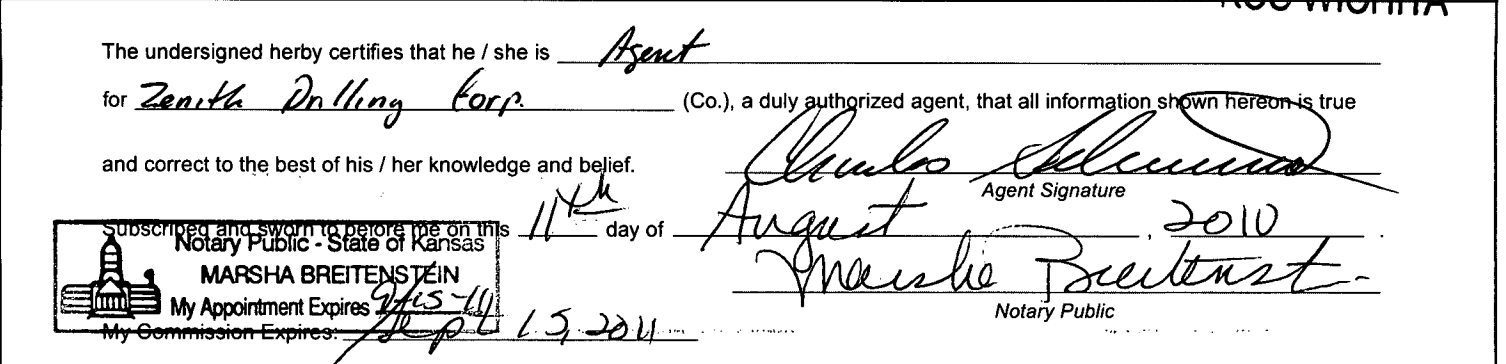 KCC WICHITA
The undersigned herby certifies that he / she is Agent
for Zenith Drilling Corp. (Co.), a duly authorized agent, that all information shown hereon is true
and correct to the best of his / her knowledge and belief. Charles
Agent Signature
Subscribed and sworn to before me on this 11th day of August, 2010.
Notary Public - State of Kansas
MARSHA BREITENSTEIN
Marsha Breitenst-
My Appointment Expires 9-15-11
Notary Public
My Commission Expires: Sept 15, 2011